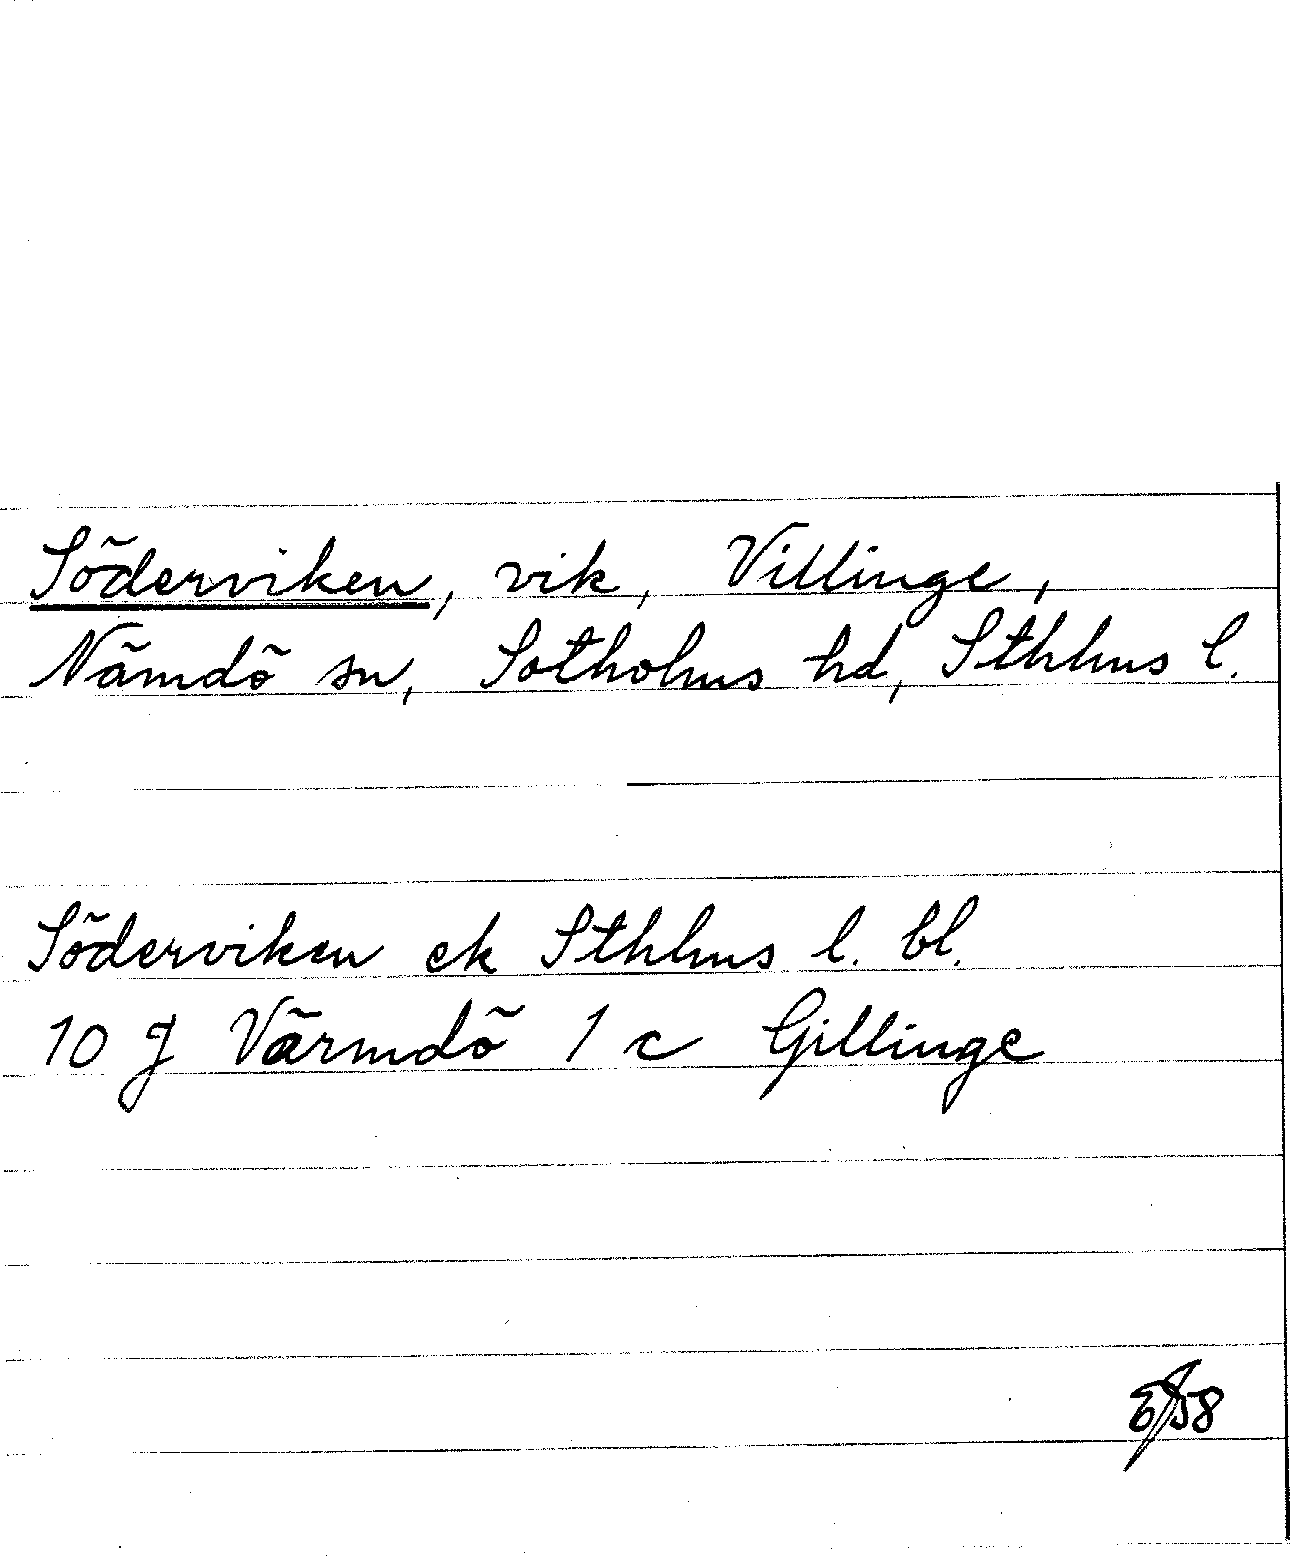 Söderviken, vik, Villinge,
Nämdö sn, Sotholms hd, Sthlms l.
Söderviken ek Sthlms l. bl.
10 J Värmdö 1 c Gillinge
58